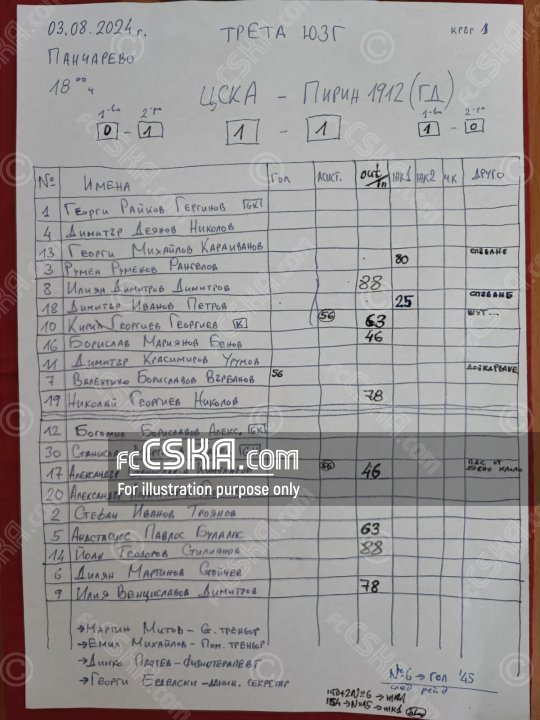 03.08.2024г. ТРЕТА ЮЗГ КРЪГ 1
ПАНЧАРЕВО
18 00 ч ЦСКА - ПИРИН 1912 (ГД)
1-во 2-ро 1-во 2-ро
0 - 1 1 - 1 1 - 0
№ ИМЕНА ГОЛ АСИСТ. out/in ЖК1 ЖК2 ЧК ДРУГО
1 ГЕОРГИ РАЙКОВ ГЕРГИНОВ GK
4 ДИМИТЪР ДЕЯНОВ НИКОЛОВ
13 ГЕОРГИ МИХАЙЛОВ КАРАИВАНОВ СПЪВАНЕ
3 РУМЕН РУМЕНОВ РАНГЕЛОВ 80
8 ИЛИЯН ДИМИТРОВ ДИМИТРОВ 88
18 ДИМИТЪР ИВАНОВ ПЕТРОВ 25 СПЪВАНЕ
10 КИРИЛ ГЕОРГИЕВ ГЕОРГИЕВ К 56 63 ШУТ...
16 БОРИСЛАВ МАРИЯНОВ БЕНОВ 46
11 ДИМИТЪР КРАСИМИРОВ УРУМОВ
7 ВАЛЕНТИНО БОРИСЛАВОВ ВЪРБАНОВ 56 ДОЙКАРВАНЕ
19 НИКОЛАЙ ГЕОРГИЕВ НИКОЛОВ 78
12 БОГОМИЛ БОРИСЛАВОВ АЛЕКС. GK
30
fcCSKA.com
17 АЛЕКСАНДЪР 56 46 ПАС ОТ
For illustration purpose only
20 АЛЕКСАНДЪР
2 СТЕФАН ИВАНОВ ТРОЯНОВ
5 АНАСТАСИОС ПАВЛОС БУЛАЛАС 63
14 ЙОАН ТЕОДОРОВ СТИЛИАНОВ 88
6 ДИЛЯН МАРТИНОВ СТОЙЧЕВ
9 ИЛИЯ ВЕНЦИСЛАВОВ ДИМИТРОВ 78
→ МАРТИН МИТОВ - С. ТРЕНЬОР
→ ЕМИЛ МИХАЙЛОВ - ПОМ. ТРЕНЬОР
→ ДИНКО - ФИЗИОТЕРАПЕВТ №6 → ГОЛ '45
→ ГЕОРГИ - АДМИН. СЕКРЕТАР СЛЕД
№6 → ЖК1
№15 → ЖК1